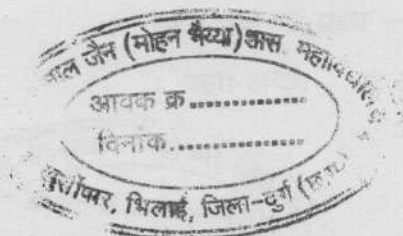 लाल जैन (मोहन भैय्या) शास महाविद्यालय
आवक क्र..............
दिनांक..............
खुर्सीपार, भिलाई, जिला-दुर्ग (छ.ग.)